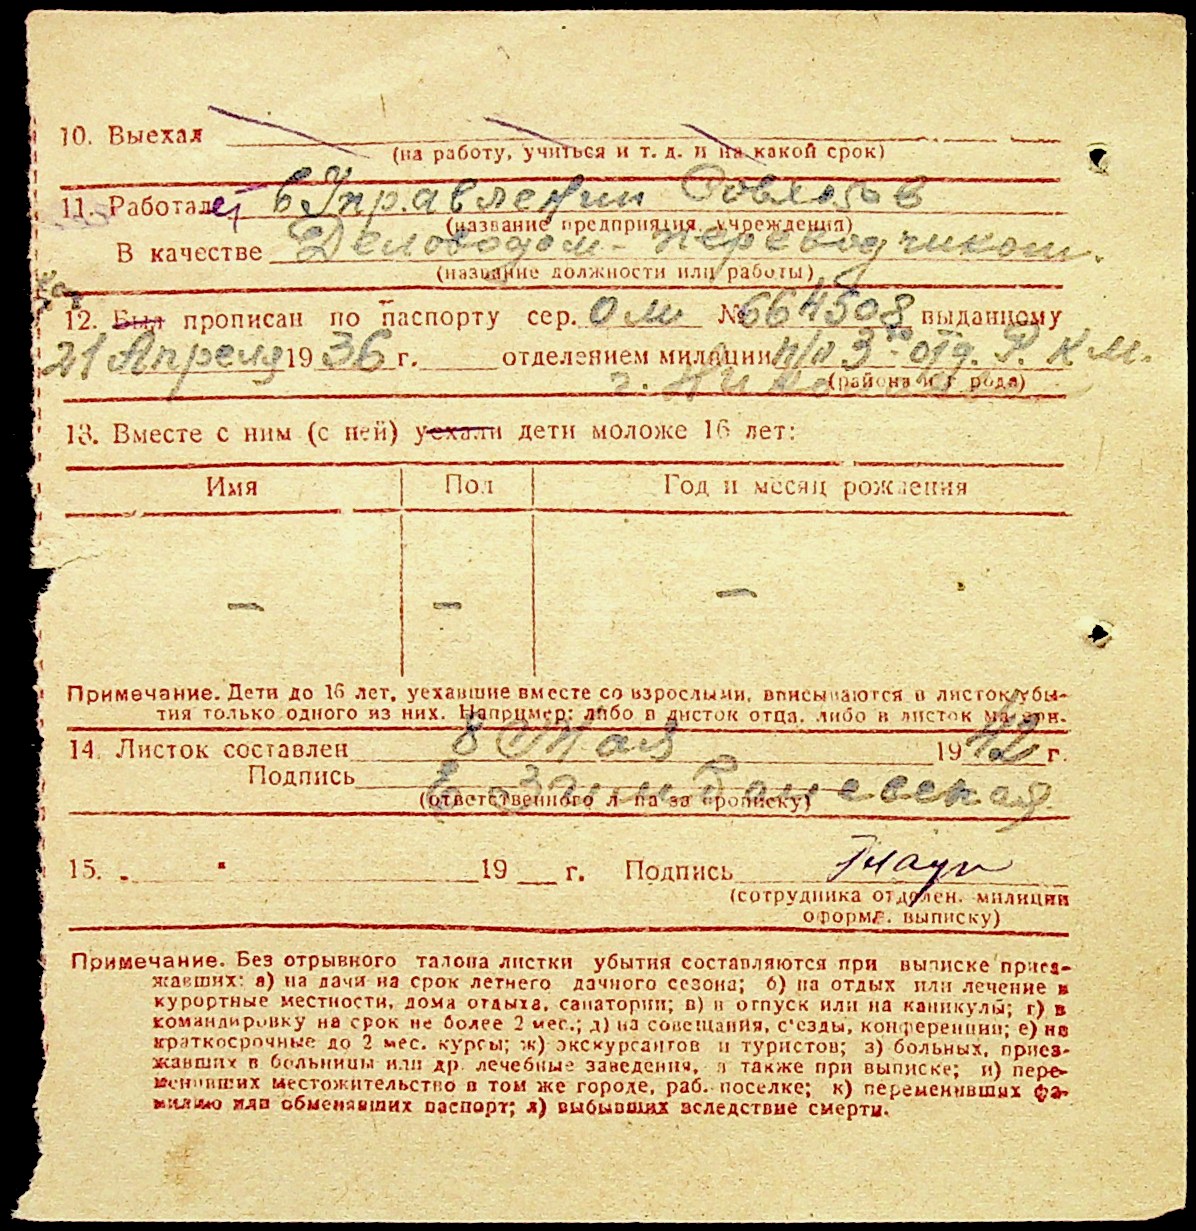 10. Выехал
(на работу, учиться и т. д. и на какой срок)
11. Работает в Управлении
(название предприятия, учреждения)
В качестве Деловодом-переводчиком.
(название должности или работы)
12. Был прописан по паспорту сер. ОМ № 664508 выданному
21 Апреля 1936 г. отделением милиции п/п 3го отд. Р. К. М.
г.
(района и г рода)
13. Вместе с ним (с ней) уехали дети моложе 16 лет:
Имя Пол Год и месяц рождения
— — —
Примечание. Дети до 16 лет, уехавшие вместе со взрослыми, вписываются в листок убы-
тия только одного из них. Например: либо в листок отца, либо в листок матери.
14. Листок составлен 8 Мая 1942 г.
Подпись
(ответственного л на за прописку)
15. „ “ 19 г. Подпись
(сотрудника отделен. милиции
оформл. выписку)
Примечание. Без отрывного талона листки убытия составляются при выписке приез-
жавших: а) на дачи на срок летнего дачного сезона; б) на отдых или лечение в
курортные местности, дома отдыха, санатории; в) в отпуск или на каникулы; г) в
командировку на срок не более 2 мес.; д) на совещания, с'езды, конференции; е) на
краткосрочные до 2 мес. курсы; ж) экскурсантов и туристов; з) больных, приез-
жавших в больницы или др. лечебные заведения, а также при выписке; и) пере-
менивших местожительство в том же городе, раб. поселке; к) переменивших фа-
милию или обменявших паспорт; л) выбывших вследствие смерти.